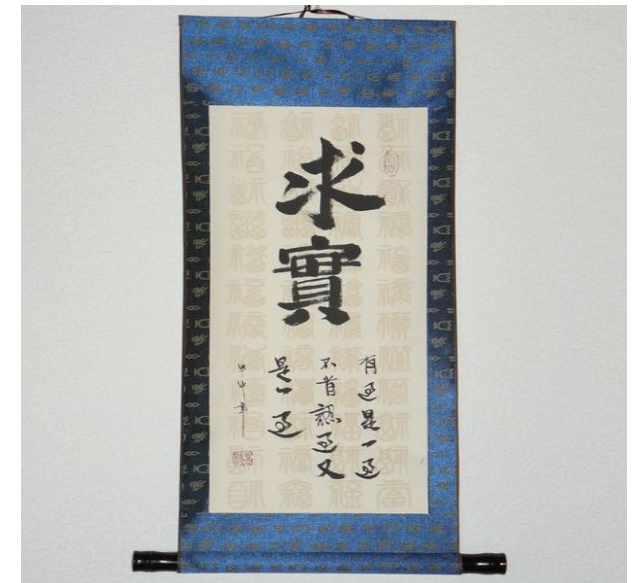 求實
有过是一过
不肯認过又
是一过
甲申年